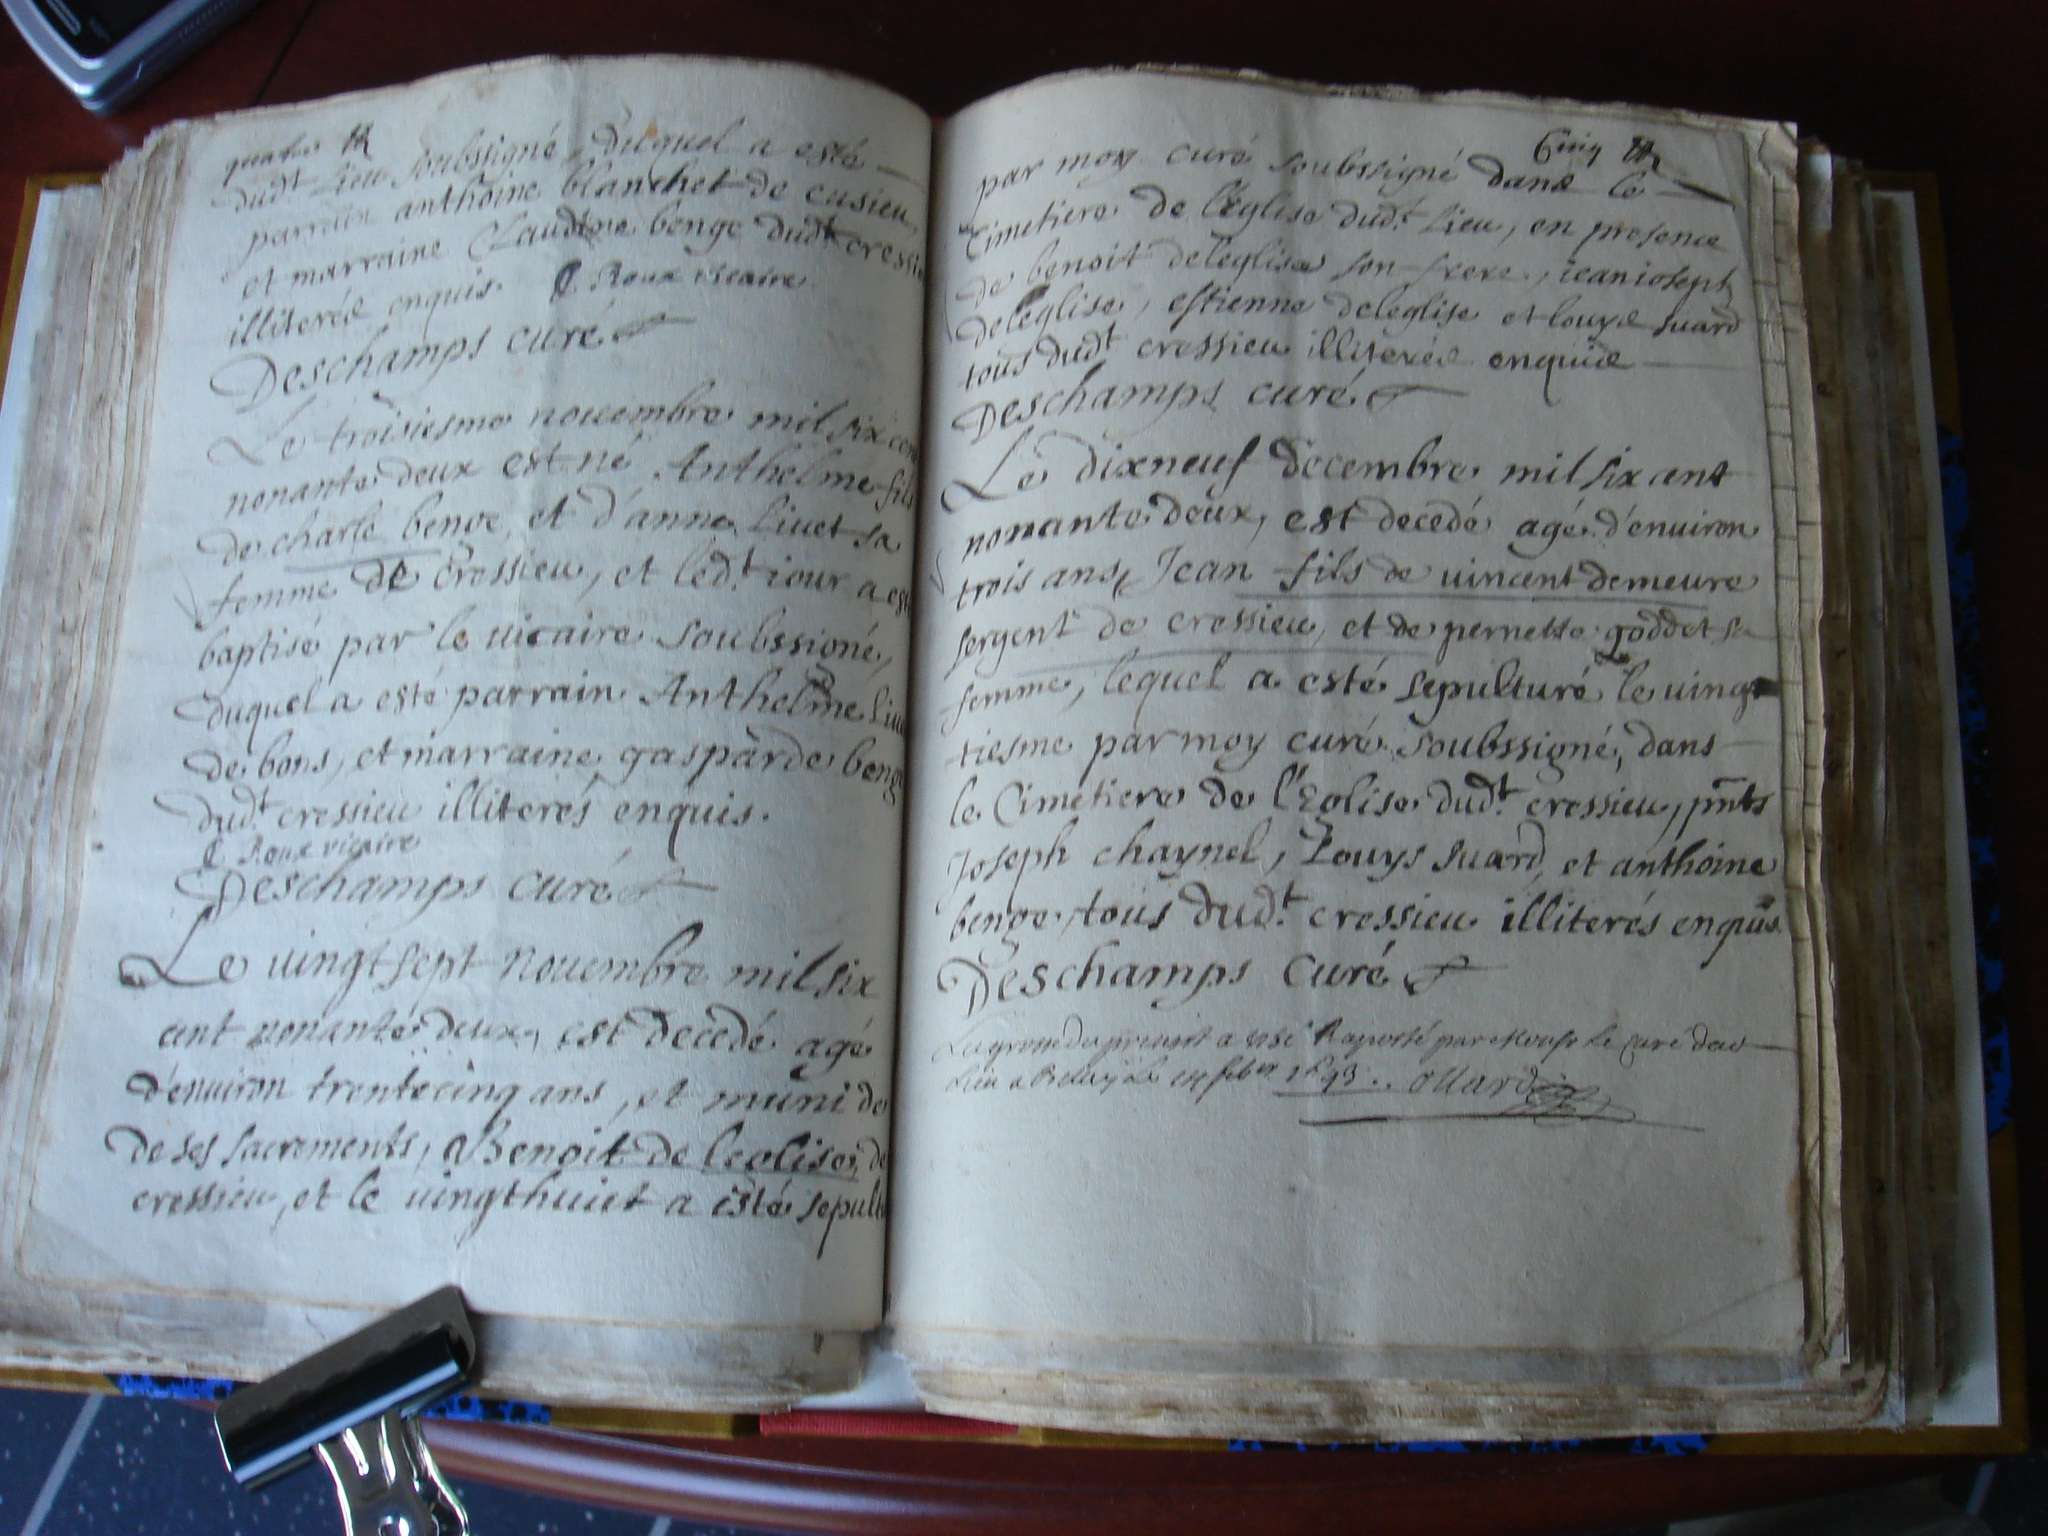 quatre
dud.t Lieu soubssigné, duquel a esté
parrain anthoine blanchet de cusieu,
et marraine Claudine benge dud.t cressieu
illiterés enquis. C Roux vicaire
Deschamps curé
Le troisiesme nouembre mil six cent
nonante deux est né Anthelme fils
de charle benge, et d'anne Liuet sa
femme de cressieu, et led.t iour a esté
baptisé par le uicaire soubssigné,
duquel a esté parrain Anthelme Liu
de bons, et marraine gasparde benge
dud.t cressieu illiterés enquis.
C Roux vicaire
Deschamps curé
Le uingt sept nouembre mil six
cent nonante deux, est decedé agé
d'enuiron trente cinq ans, et muni de
de ses sacrements, Benoit de leglise, de
cressieu, et le uingthuict a esté sepult
Cinq
par moy curé soubssigné dans le
Cimetiere de l'Eglise dud.t Lieu, en presence
de benoit deleglise son frere, iean ioseph
deleglise, estienne deleglise et louys suard
tous dud.t cressieu illiterés enquis
Deschamps curé
Le dixneuf decembre mil six cent
nonante deux, est decedé agé d'enuiron
trois ans, Jean fils de uincent demeure
sergent de cressieu, et de pernette goddet sa
femme, lequel a esté sepulturé le uingt
tiesme par moy curé soubssigné, dans
le Cimetiere de l'Eglise dud.t cressieu, pnts
Joseph chaynel, Louys suard, et anthoine
benge, tous dud.t cressieu illiterés enquis
Deschamps curé
La grosse du present a esté Raporté par Monsr le curé dud
lieu a Belley le 1693. ollard